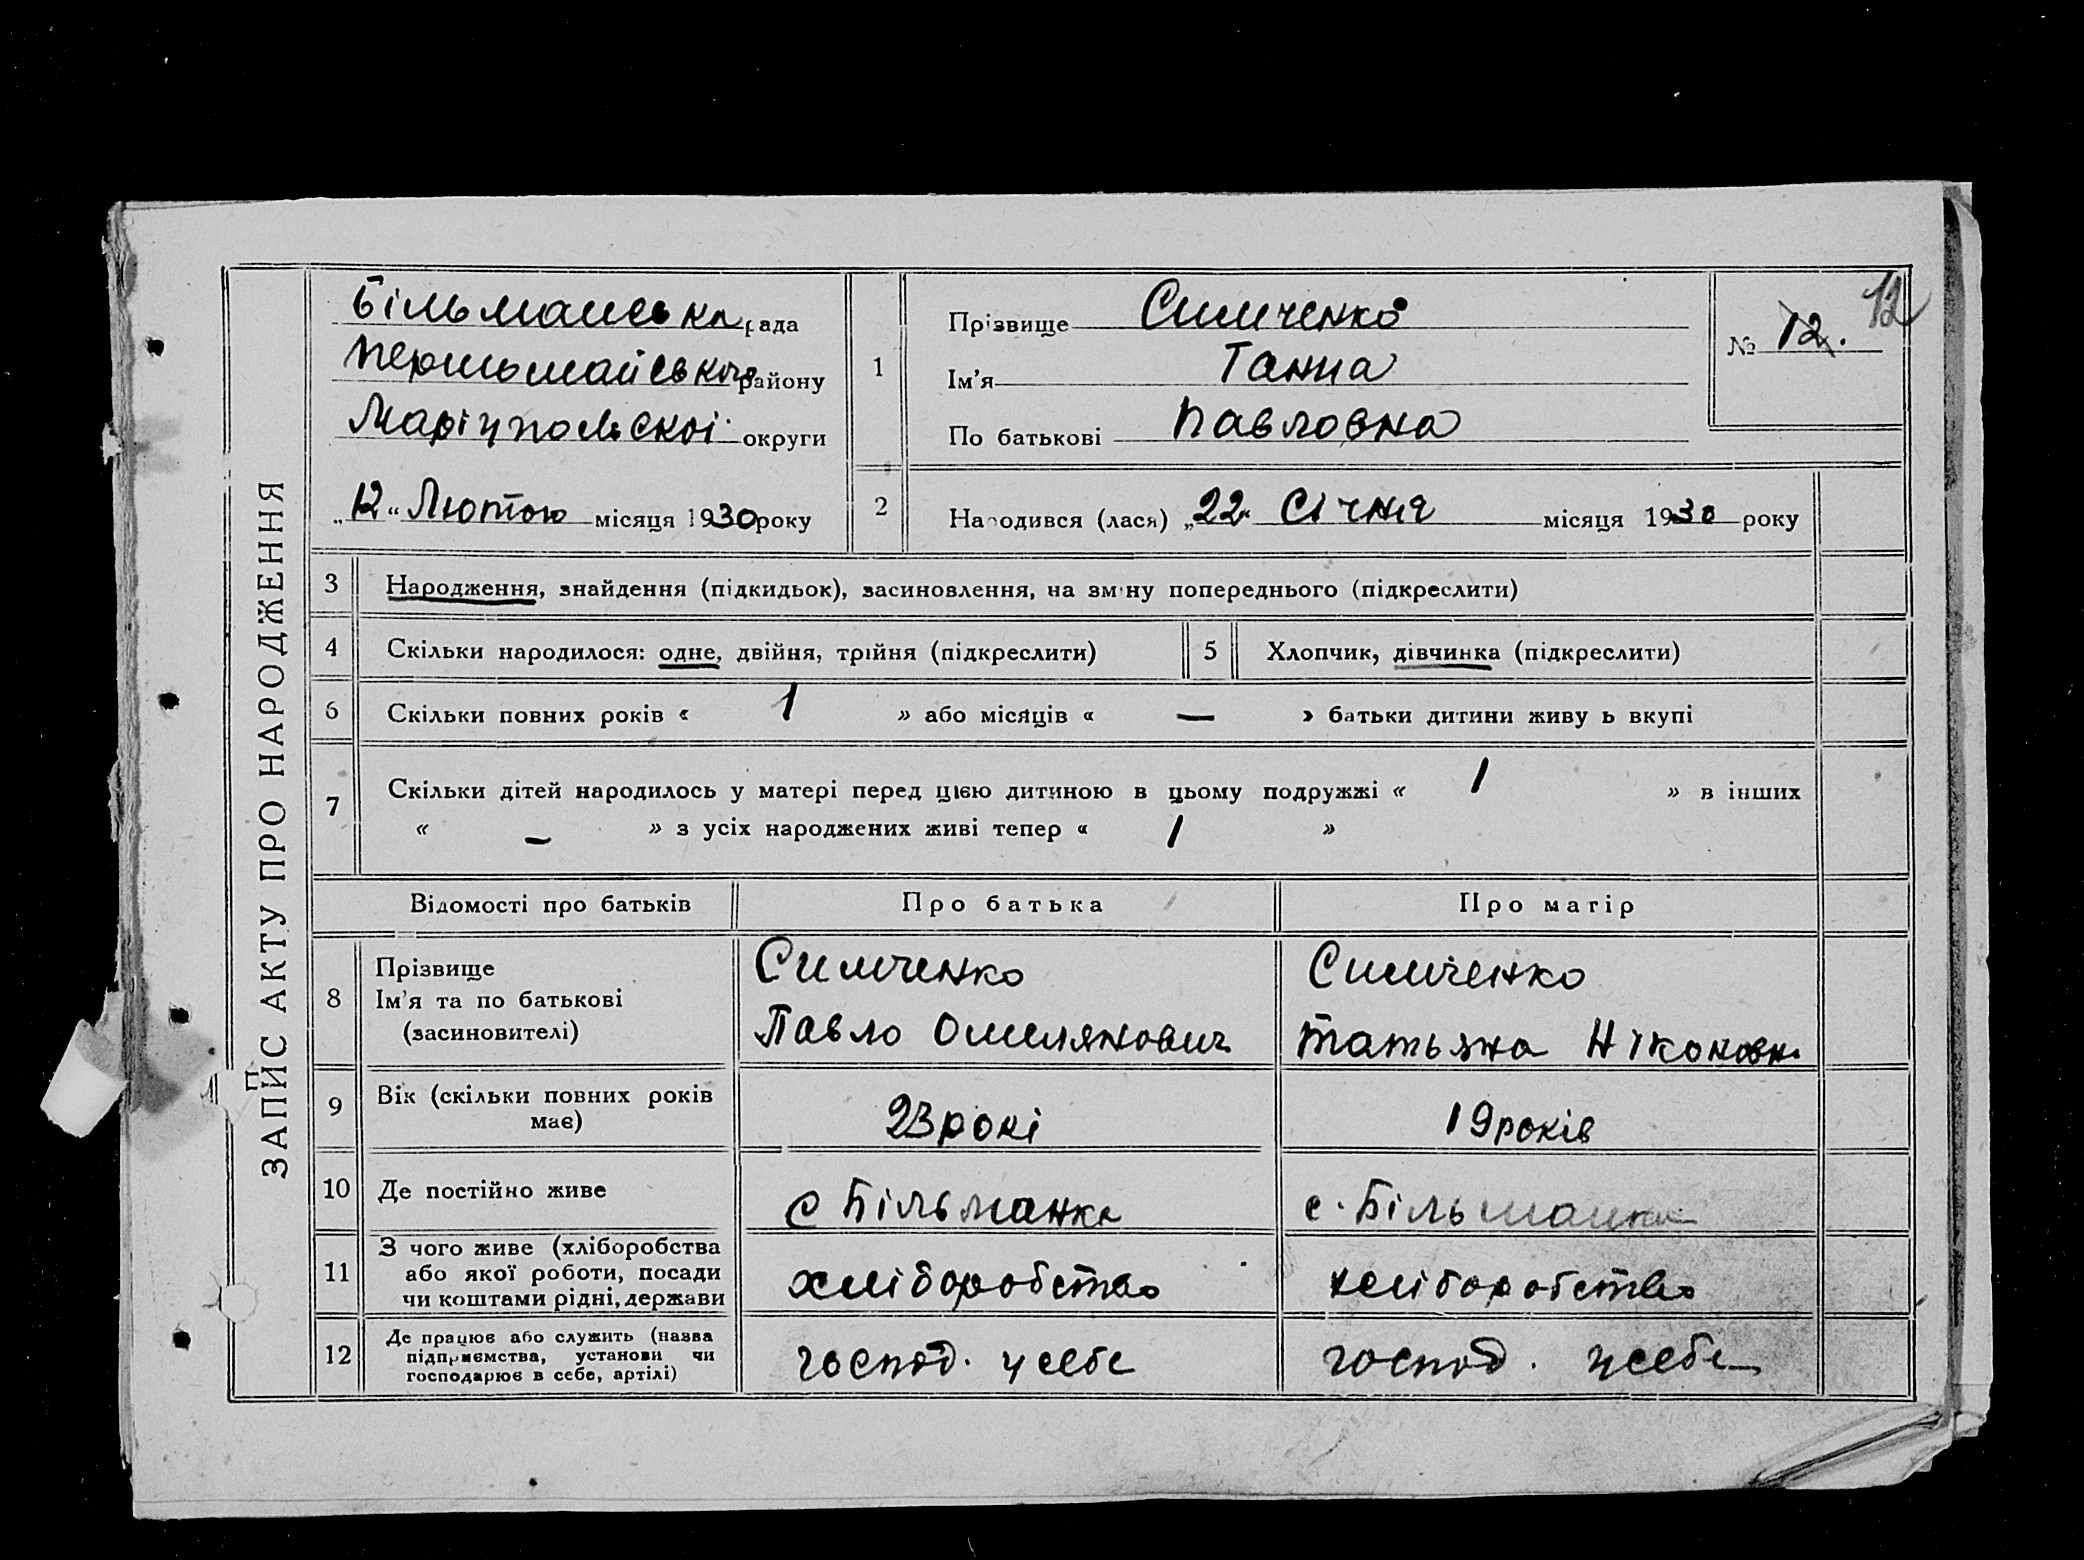 ЗАПИС АКТУ ПРО НАРОДЖЕННЯ
П
Більманська рада
Першомайського району
Маріупольскої округи
„12“ Лютого місяця 1930 року
1
Прізвище Симченко
Ім'я Ганна
По батькові Павловна
№ 12.
12
2
Народився (лася) „22. Січня місяця 1930 року
3 Народження, знайдення (підкидьок), засиновлення, на зміну попереднього (підкреслити)
4 Скільки народилося: одне, двійня, трійня (підкреслити) 5 Хлопчик, дівчинка (підкреслити)
6 Скільки повних років « 1 » або місяців « — » батьки дитини живуть вкупі
7 Скільки дітей народилось у матері перед цією дитиною в цьому подружжі « 1 » в інших
« – » з усіх народжених живі тепер « 1 »
Відомості про батьків Про батька Про матір
8 Прізвище
Ім'я та по батькові
(засиновителі)
Симченко
Павло Омелянович
Симченко
Татьяна Ніконовн.
9 Вік (скільки повних років
має)
23 рокі
19 років
10 Де постійно живе
с Більманка
с. Більманка
11 З чого живе (хліборобства
або якої роботи, посади
чи коштами рідні, держави
хліборобство
хліборобство
12 Де працює або служить (назва
підприємства, установи чи
господарює в себе, артілі)
господ. усебе
господ. усебе